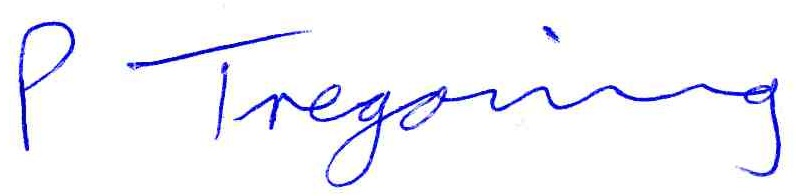 P Tregoning